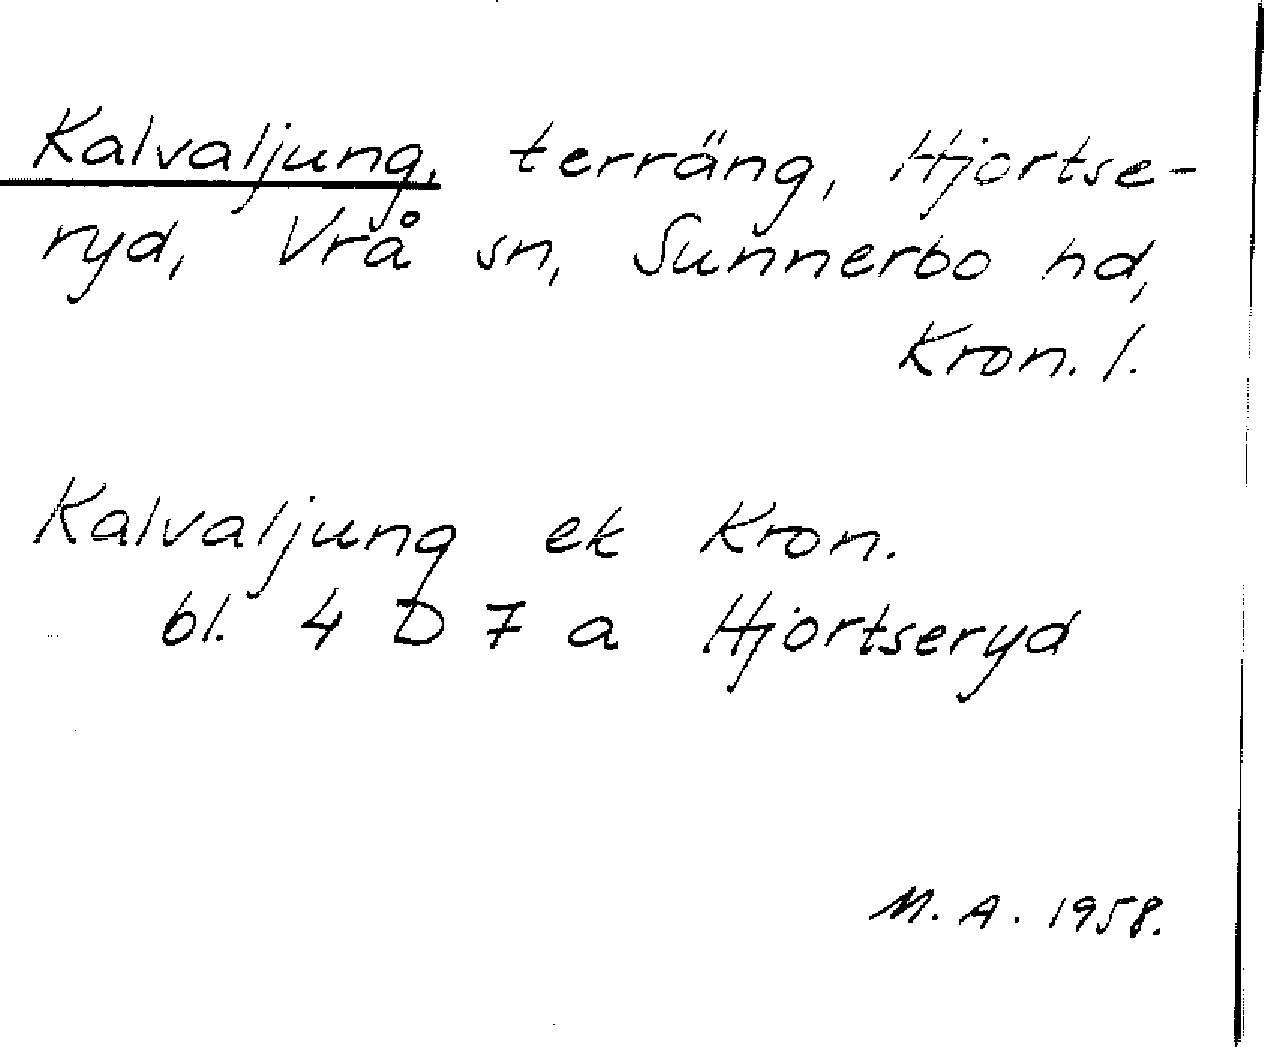 Kalvaljung, terräng, Hjortse-
ryd, Vrå sn, Sunnerbo hd,
Kron. l.
Kalvaljung ek Kron.
bl. 4 D 7 a Hjortseryd
M. A. 1958.